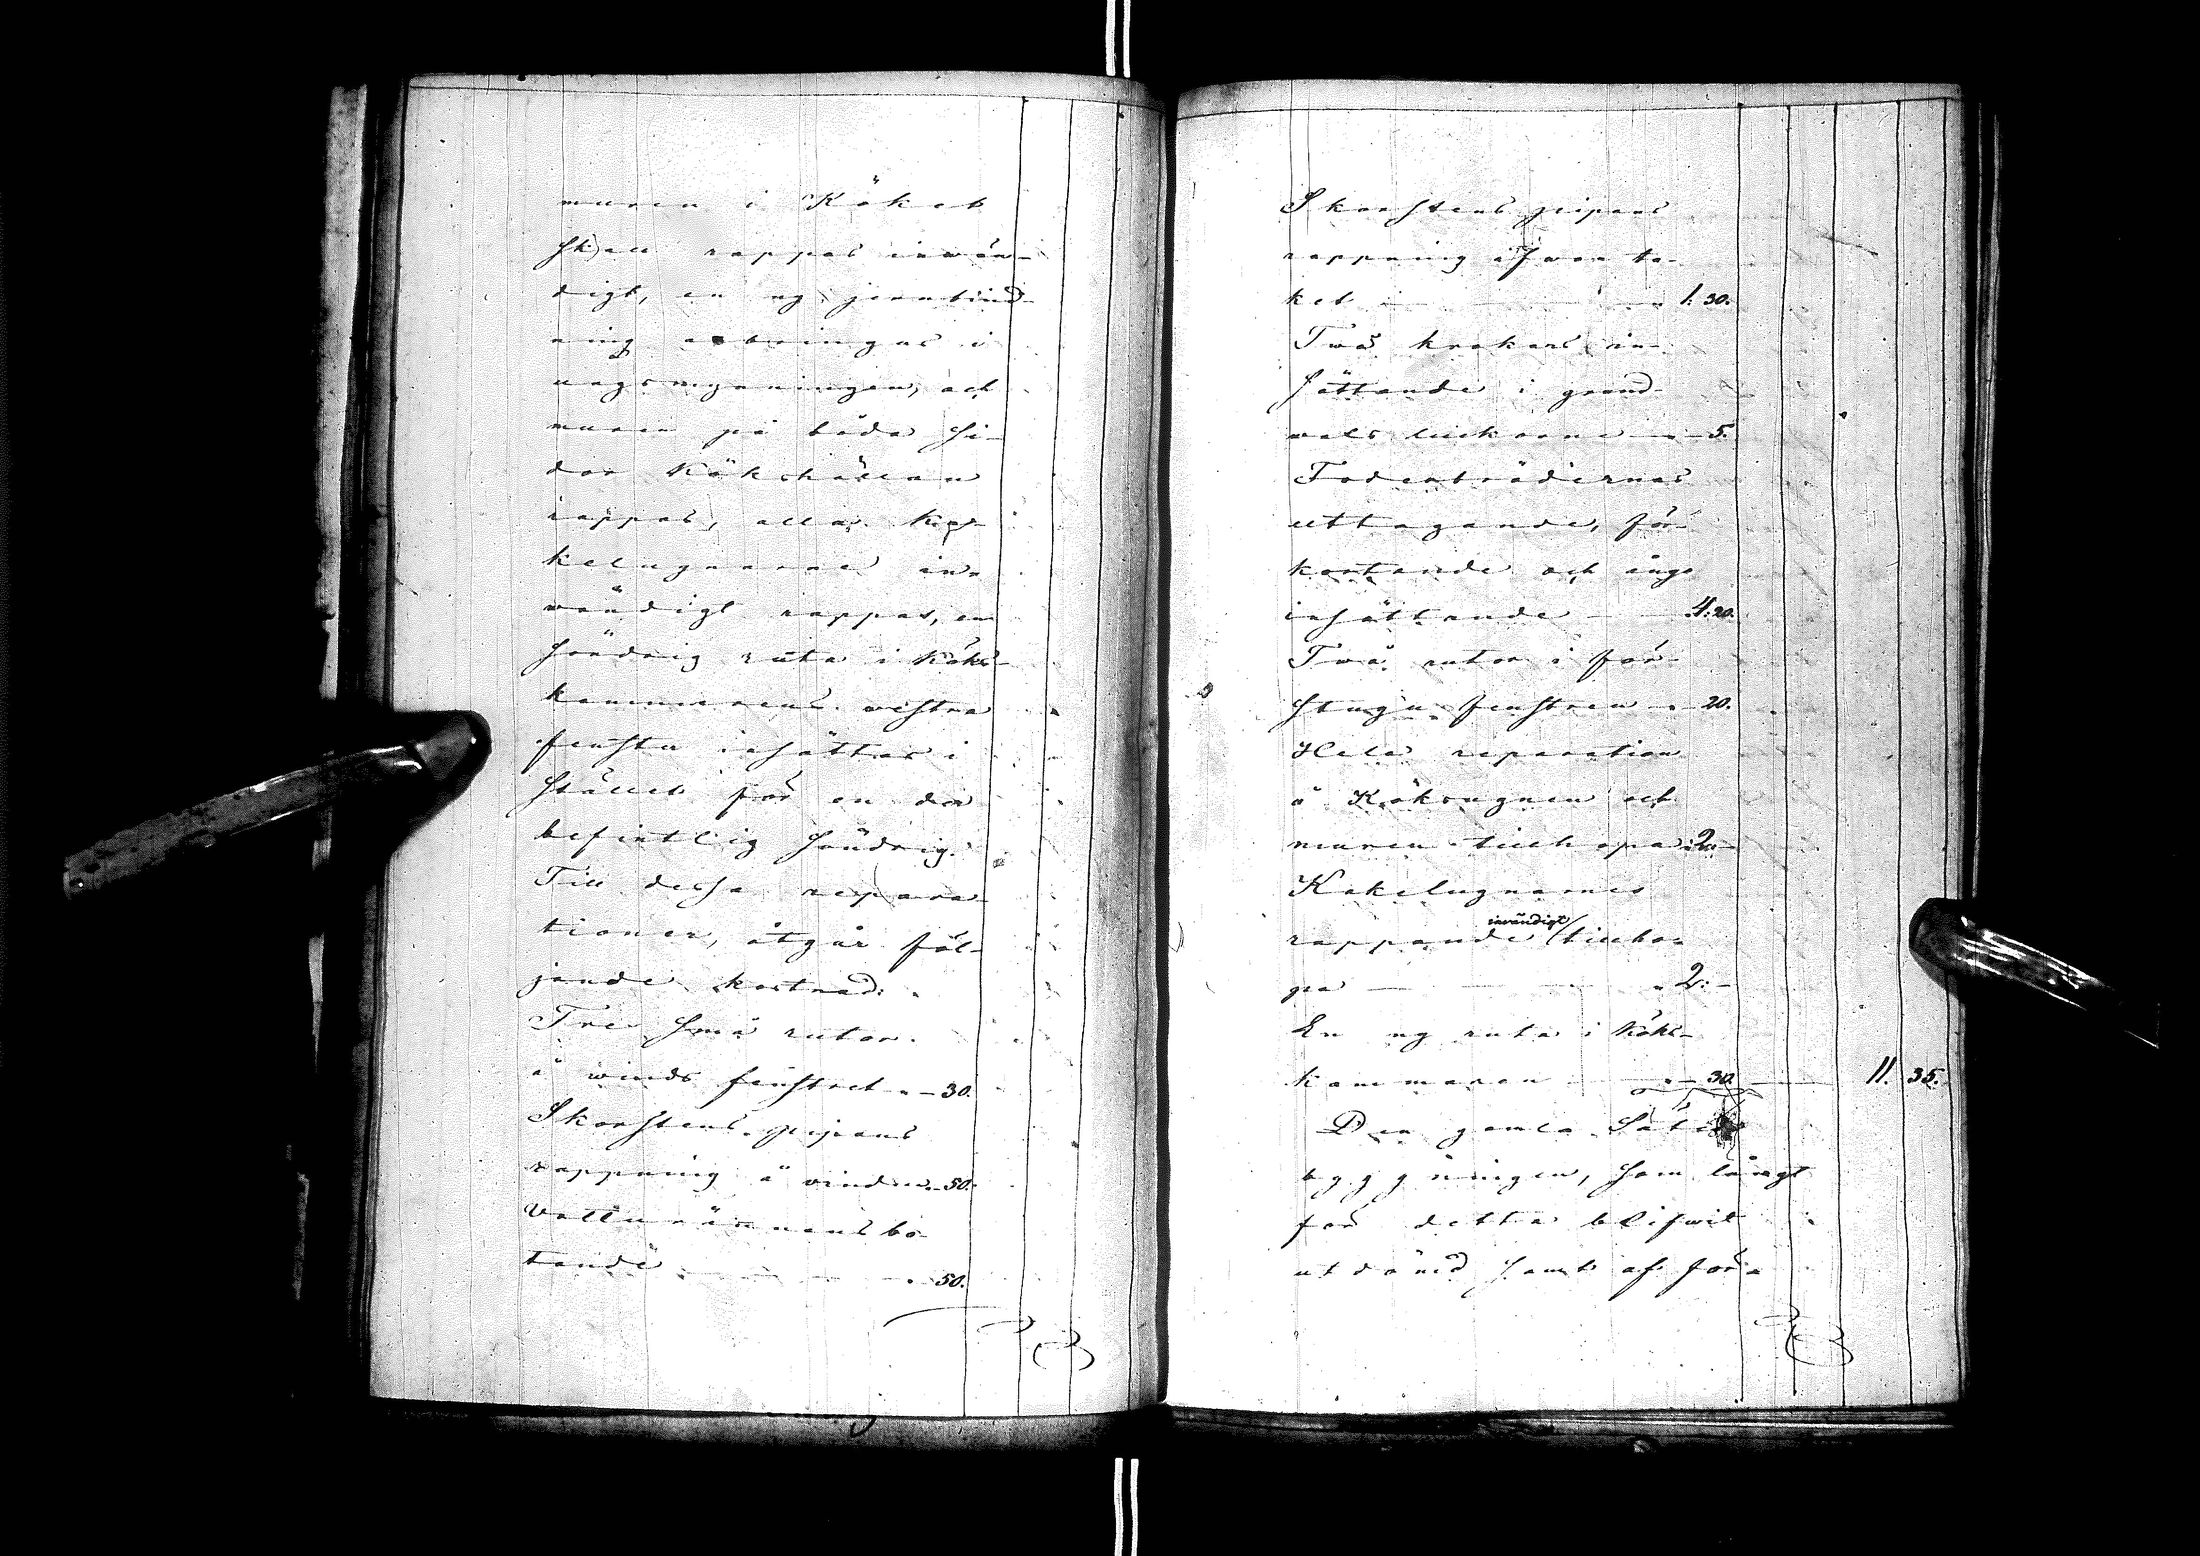 muren i Köket
skall rappas inwän-
digt, en ny jernbind
ning anbringas i
ungsmynningen, och
muren på båda si-
dor Kökshällan
rappas, alla Ka-
kelugnarne in-
wändigt rappas, en
söndrig ruta i Köks-
kammarens westra
fenster insättas i
stället för en der
befintlig söndrig.
Till dessa repara-
tioner, åtgår föl-
jande kostnad:
Tre små rutor
å winds fenstret " - 30.
Skorstens pipans
rappning å vinden " 50.
Vattu rännans bo
tande " 50.
Skorstens pipans
rappning öfwer ta-
ket 1. 30.
Twå krokars in-
sättande i grund-
wals luckorne " - 5.
Foderbrädernas
uttagande, för-
kortande och ånyo
insättande 4. 20.
Två rutor i för-
stugu fenstren " 20.
Hela reparation
å Köksugnen och
muren tillhopa 2. -
Kakelugnarnes
invändigt
rappande tillho-
pa " 2: -
En ny ruta i Köks-
kammaren " - 30. 11. 35.
Den gamla Säte
byggningen, som långt
för detta blifwit
utdömd samt af föra